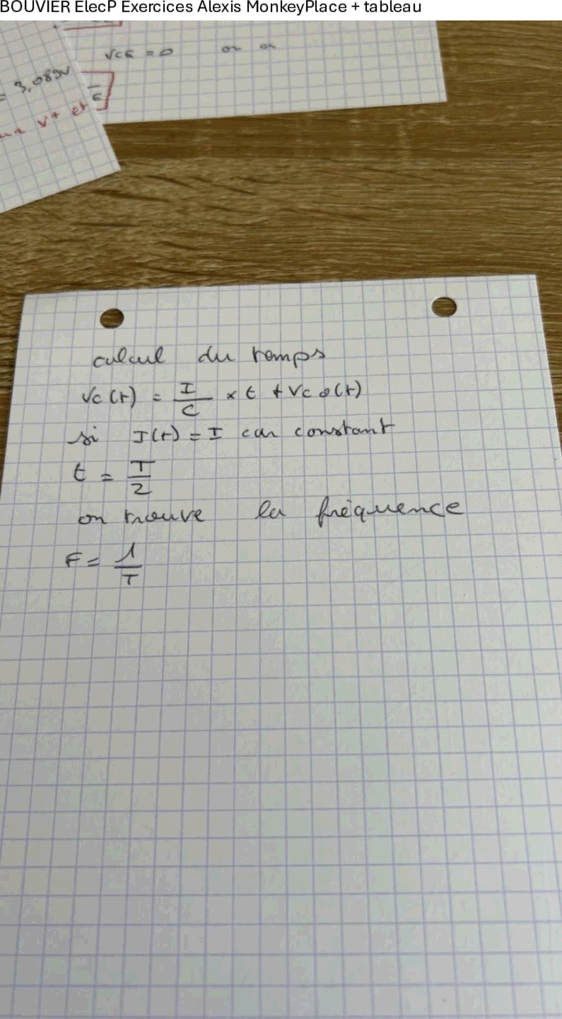 BOUVIER ElecP Exercices Alexis MonkeyPlace + tableau
VCE = 0 or a
= 3,089V
V+ et
calcul du temps
Vc(t) = I/C × t + Vc0(t)
si I(t) = I car constant
t = T/2
on trouve la fréquence
F = 1/T